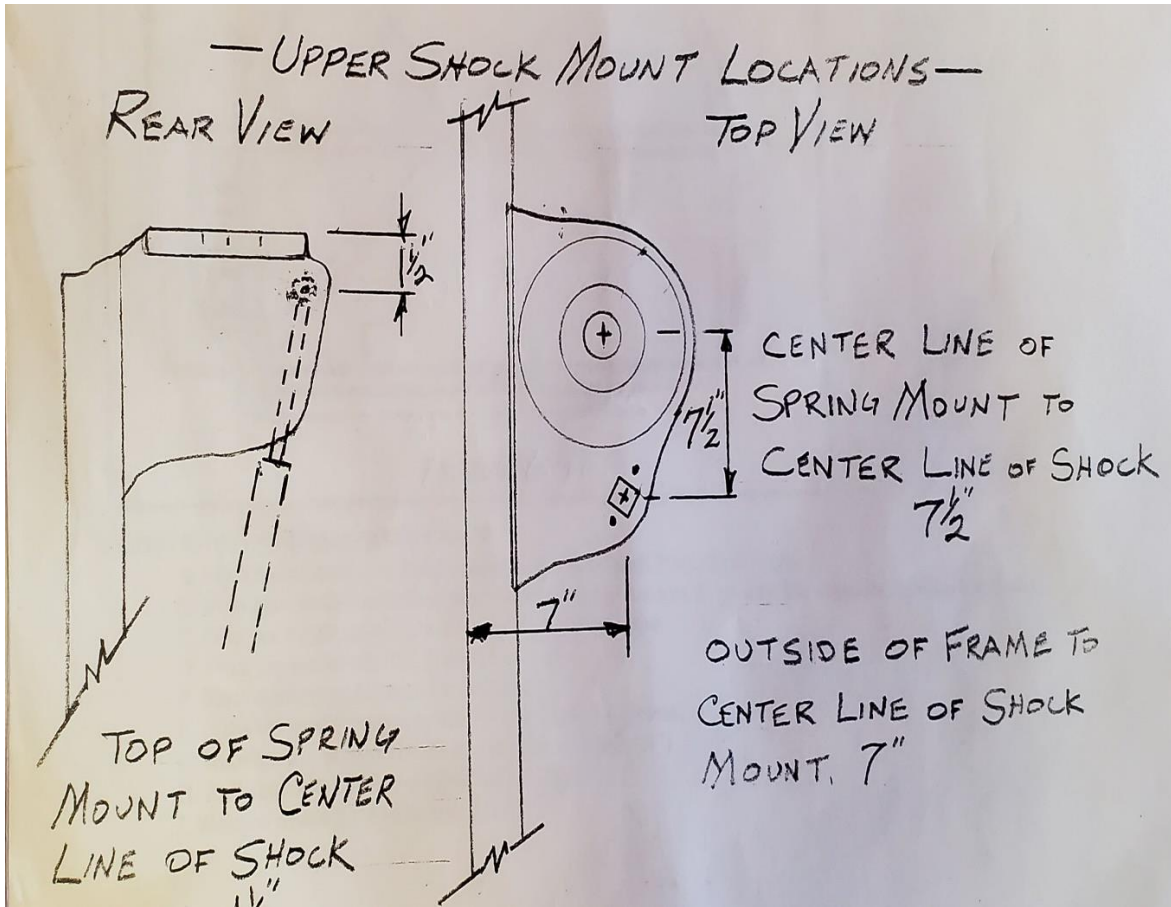 — UPPER SHOCK MOUNT LOCATIONS —
REAR VIEW
TOP VIEW
1/2"
CENTER LINE OF
SPRING MOUNT TO
CENTER LINE OF SHOCK
7 1/2"
7 1/2"
7"
OUTSIDE OF FRAME TO
CENTER LINE OF SHOCK
MOUNT. 7"
TOP OF SPRING
MOUNT TO CENTER
LINE OF SHOCK